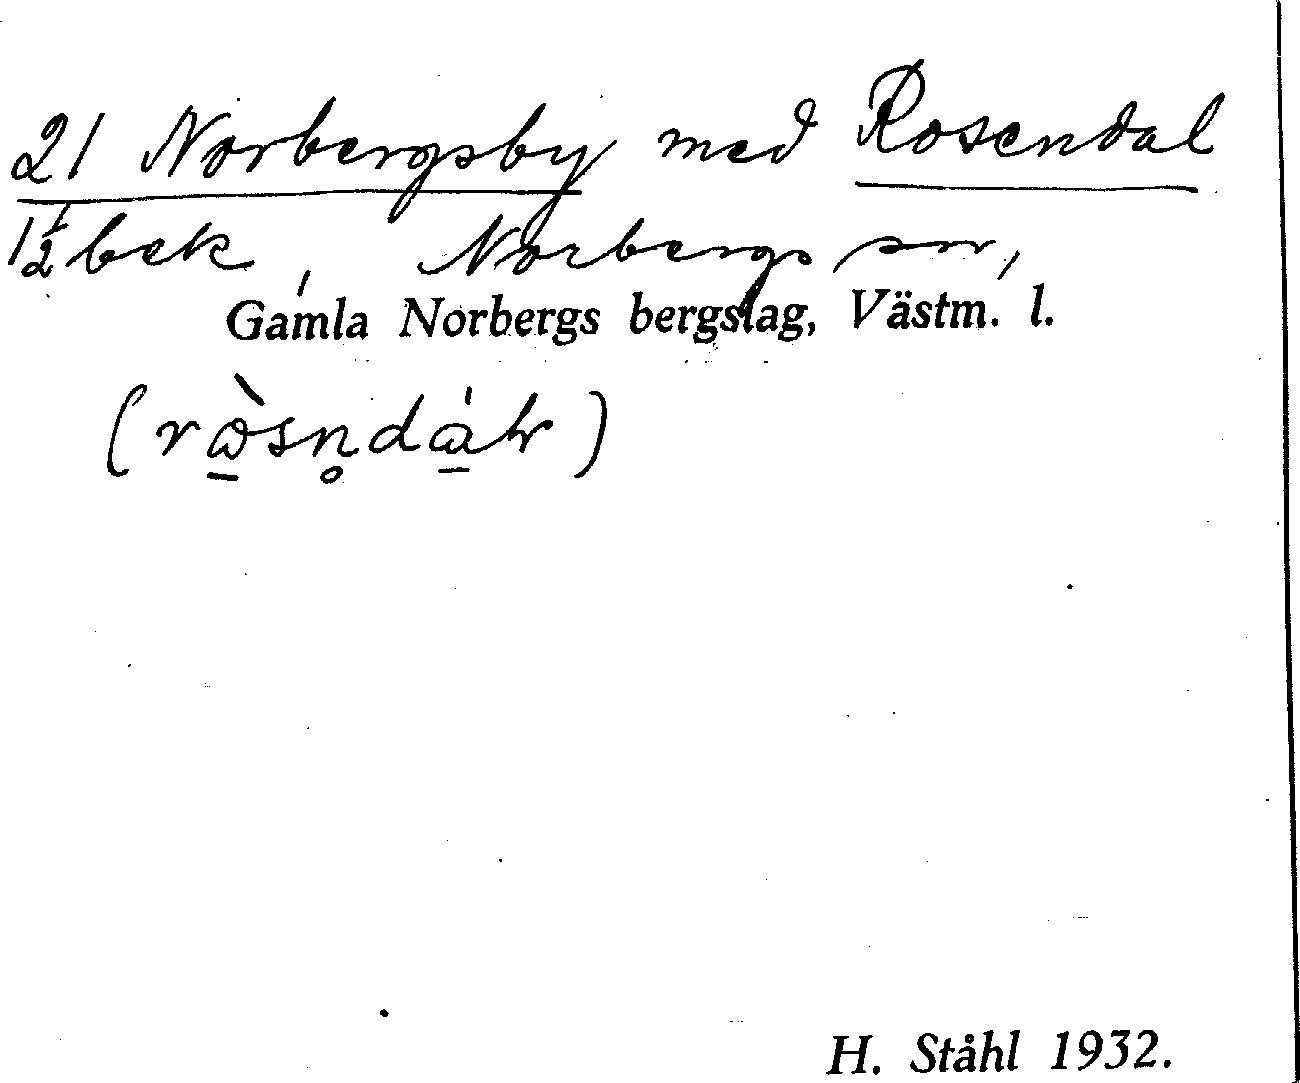 21 Norbergsby med Rosendal
1½ bek, Norbergs sn,
Gamla Norbergs bergslag, Västm. l.
H. Ståhl 1932.